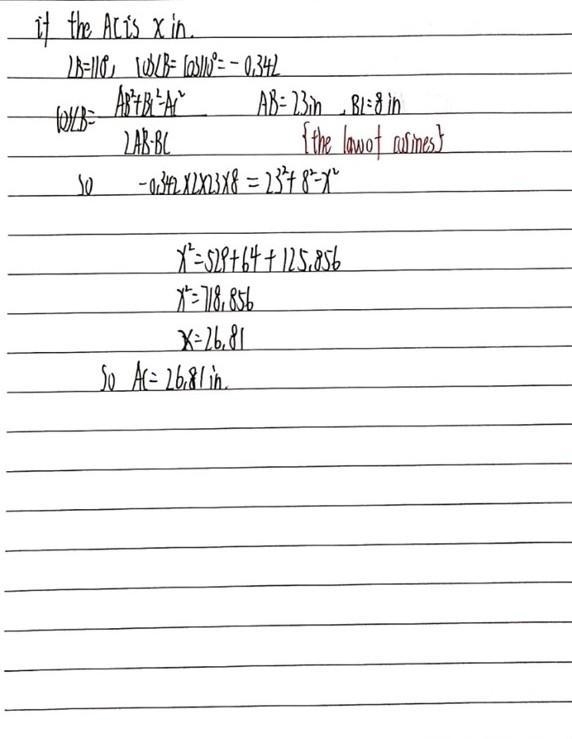 if the AC is x in.
∠B=110°, cos∠B= cos110°= - 0.342
cos∠B= AB²+BC²-AC² / 2AB·BC AB=23in , BC=8 in
{the law of cosines}
so -0.342×2×23×8 = 23²+ 8²-x²
x²=529+64+125.856
x²=718.856
x=26.81
So AC= 26.81 in.